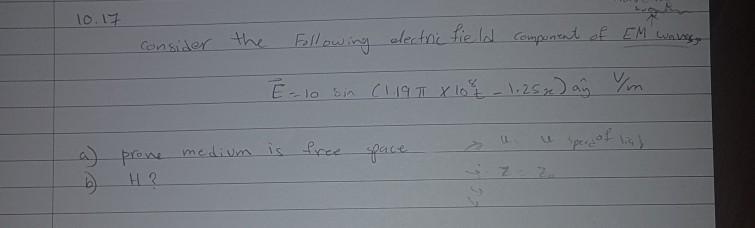 10.17
Consider the Following electric field component of EM waves,
E = 10 sin (1.19 π x 10⁸ t - 1.25x) ây V/m
a) prove medium is free space → u u speed of
b) H? → Z = Z